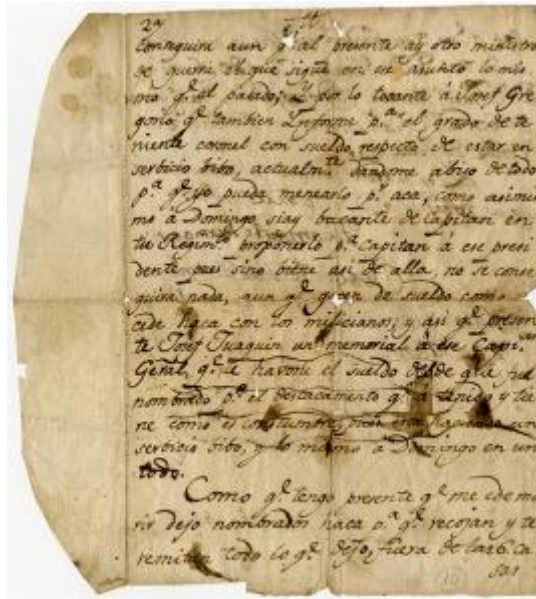 29
Conseguira aun q.e al presente ay otro ministro
de guerra el que sigue en ese asunto lo mis
mo q.e el pasado; Y por lo tocante á Josef Gre
gorio q.e tambien Ynforme p.a el grado de te
niente coronel con sueldo respecto de estar en
serbicio bibo, actualm.te dandome abiso de todo
p.a q.e yo pueda menearlo p.r aca, como asimis
mo a Domingo siay bacante de Capitan en
tu Regim.to proponerlo p.a Capitan á ese presi
dente pues sino biene asi de alla, no se conse
guira nada, aun q.e gocen de sueldo como
cede haca con los milicianos; y asi q.e presen
te Josef Juaquin un memorial á ese Capi.an
Geral, q.e le havone el sueldo desde que fue
nombrado p.a el destacamento q.e a tenido y tie
ne como es constumbre, pues esta haciendo un
serbicio bibo, y lo mismo a Domingo en un
todo.
Como q.e tengo presente q.e me e de mo
rir dejo nombrados haca p.a q.e recojan y te
remitan todo lo q.e dejo, fuera de las 6. ca
sas